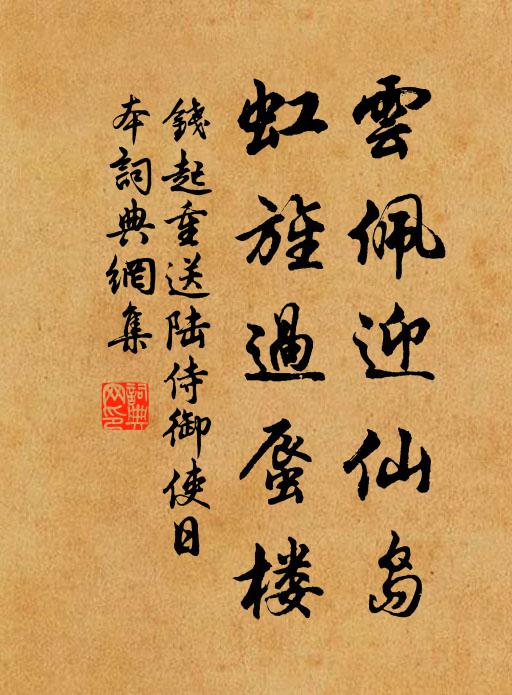 雲佩迎仙島
虹旌過蜃樓
錢起重送陆侍御使日
本詞典網集
詞典
网印